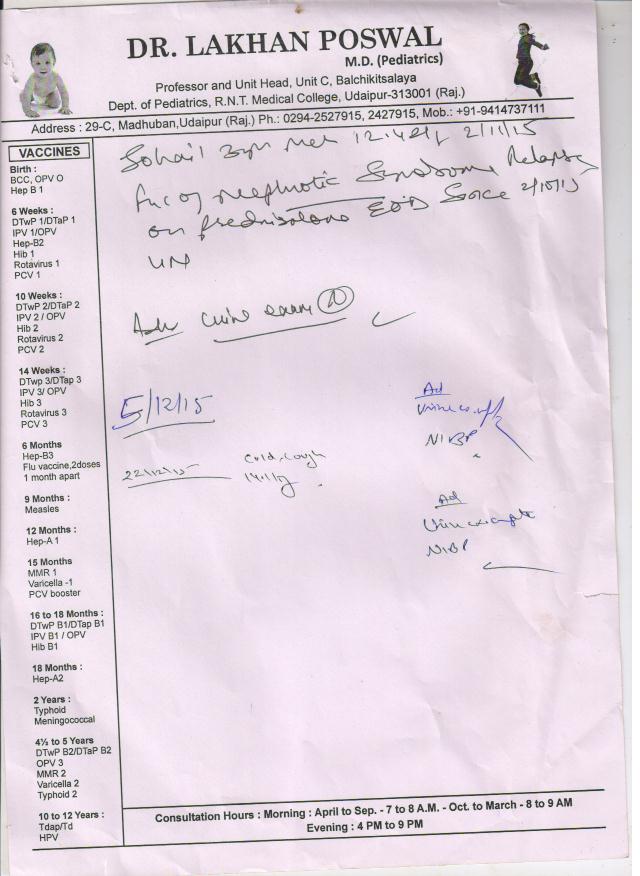 DR. LAKHAN POSWAL
M.D. (Pediatrics)
Professor and Unit Head, Unit C, Balchikitsalaya
Dept. of Pediatrics, R.N.T. Medical College, Udaipur-313001 (Raj.)
Address : 29-C, Madhuban,Udaipur (Raj.) Ph.: 0294-2527915, 2427915, Mob.: +91-9414737111
VACCINES
Birth :
BCC, OPV O
Hep B 1
6 Weeks :
DTwP 1/DTaP 1
IPV 1/OPV
Hep-B2
Hib 1
Rotavirus 1
PCV 1
10 Weeks :
DTwP 2/DTaP 2
IPV 2 / OPV
Hib 2
Rotavirus 2
PCV 2
14 Weeks :
DTwp 3/DTap 3
IPV 3/ OPV
Hib 3
Rotavirus 3
PCV 3
6 Months
Hep-B3
Flu vaccine,2doses
1 month apart
9 Months :
Measles
12 Months :
Hep-A 1
15 Months
MMR 1
Varicella -1
PCV booster
16 to 18 Months :
DTwP B1/DTap B1
IPV B1 / OPV
Hib B1
18 Months :
Hep-A2
2 Years :
Typhoid
Meningococcal
4½ to 5 Years
DTwP B2/DTaP B2
OPV 3
MMR 2
Varicella 2
Typhoid 2
10 to 12 Years :
Tdap/Td
HPV
Sohail 2/11/15
of Nephrotic Syndrome Relapse
on Prednisolone EOD Since 2/10/15
Adv Urine exam N
5/12/15
Ad
Urine
NIBP
22/12/15 Cold, Cough
Ad
Urine
NIBP
Consultation Hours : Morning : April to Sep. - 7 to 8 A.M. - Oct. to March - 8 to 9 AM
Evening : 4 PM to 9 PM